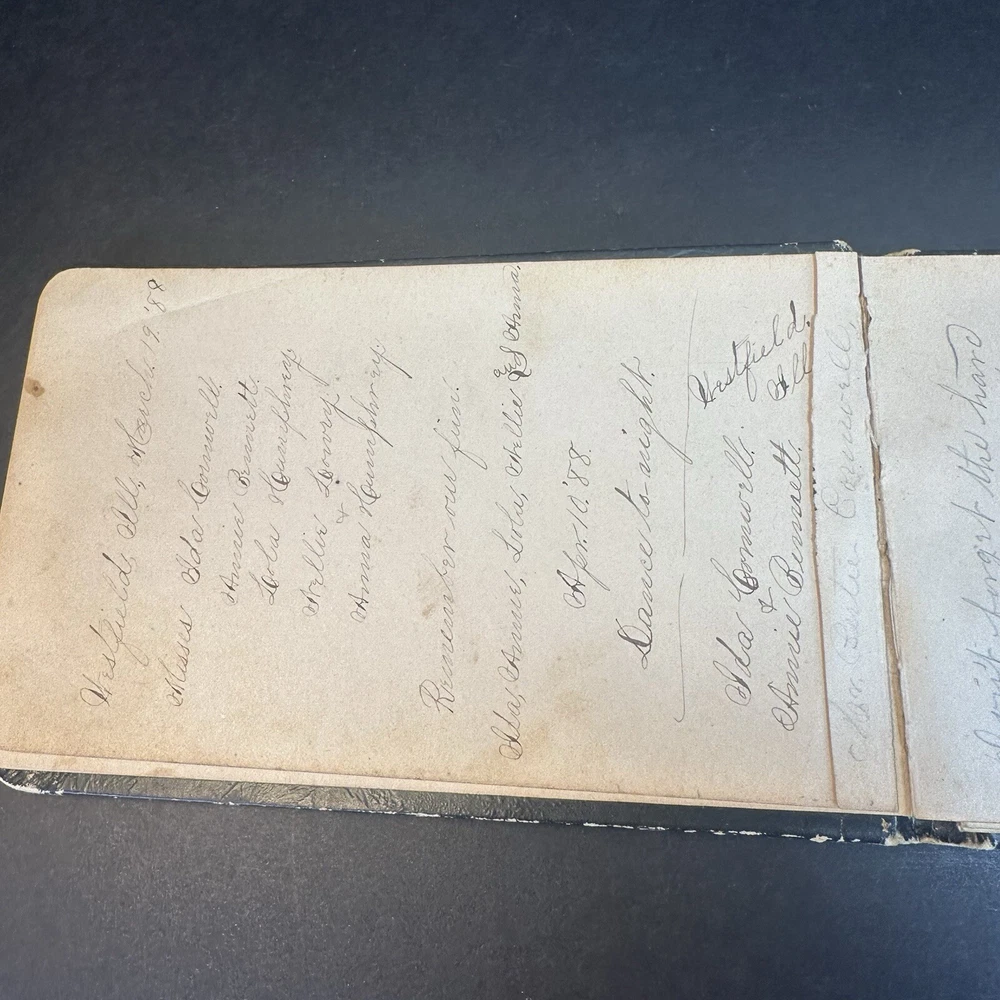 Westfield, Ills, March. 19. '88
Misses Ida Cornwell.
Annie Bennett.
Lola Humphrey
Nellie Lowry.
&
Anna Humphrey.
Remember our fun.
Ida, Annie, Lola, Nellie & Anna.
Apr. 10. '88.
Dance to-night.
Ida Cornwell.
&
Annie Bennett.
Westfield.
Ill.
Cornwell,
forget the hard